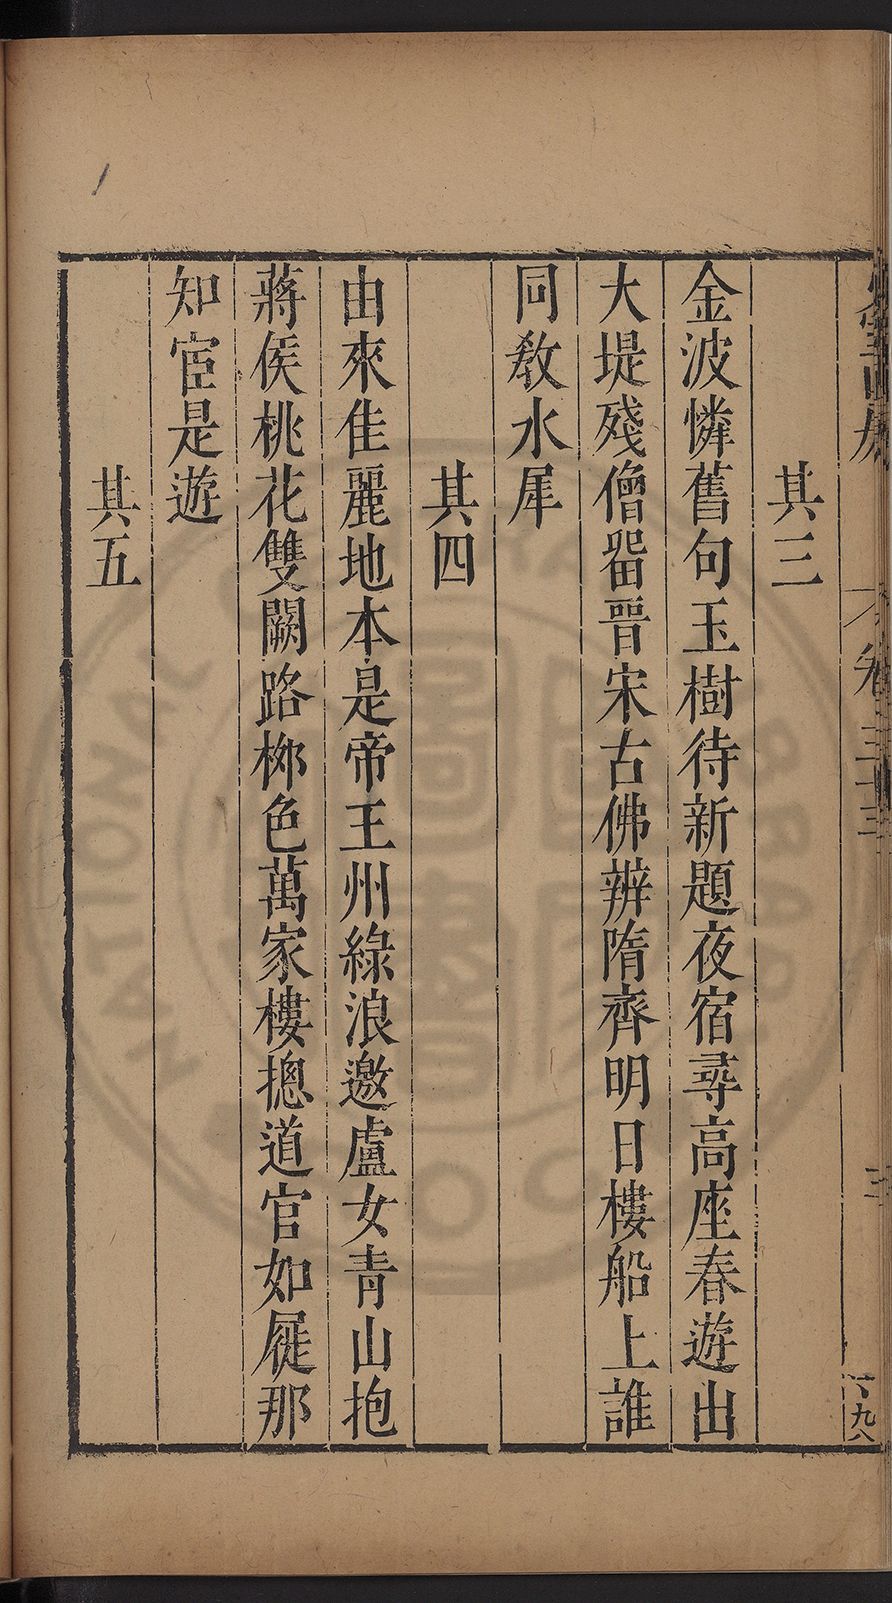 其三
金波憐舊句玉樹待新題夜宿尋高座春遊出
大堤殘僧畱晉宋古佛辨隋齊明日樓船上誰
同教水犀
其四
由來佳麗地本是帝王州綠浪邀盧女青山抱
蔣侯桃花雙闕路桺色萬家樓摠道官如屣那
知宦是遊
其五